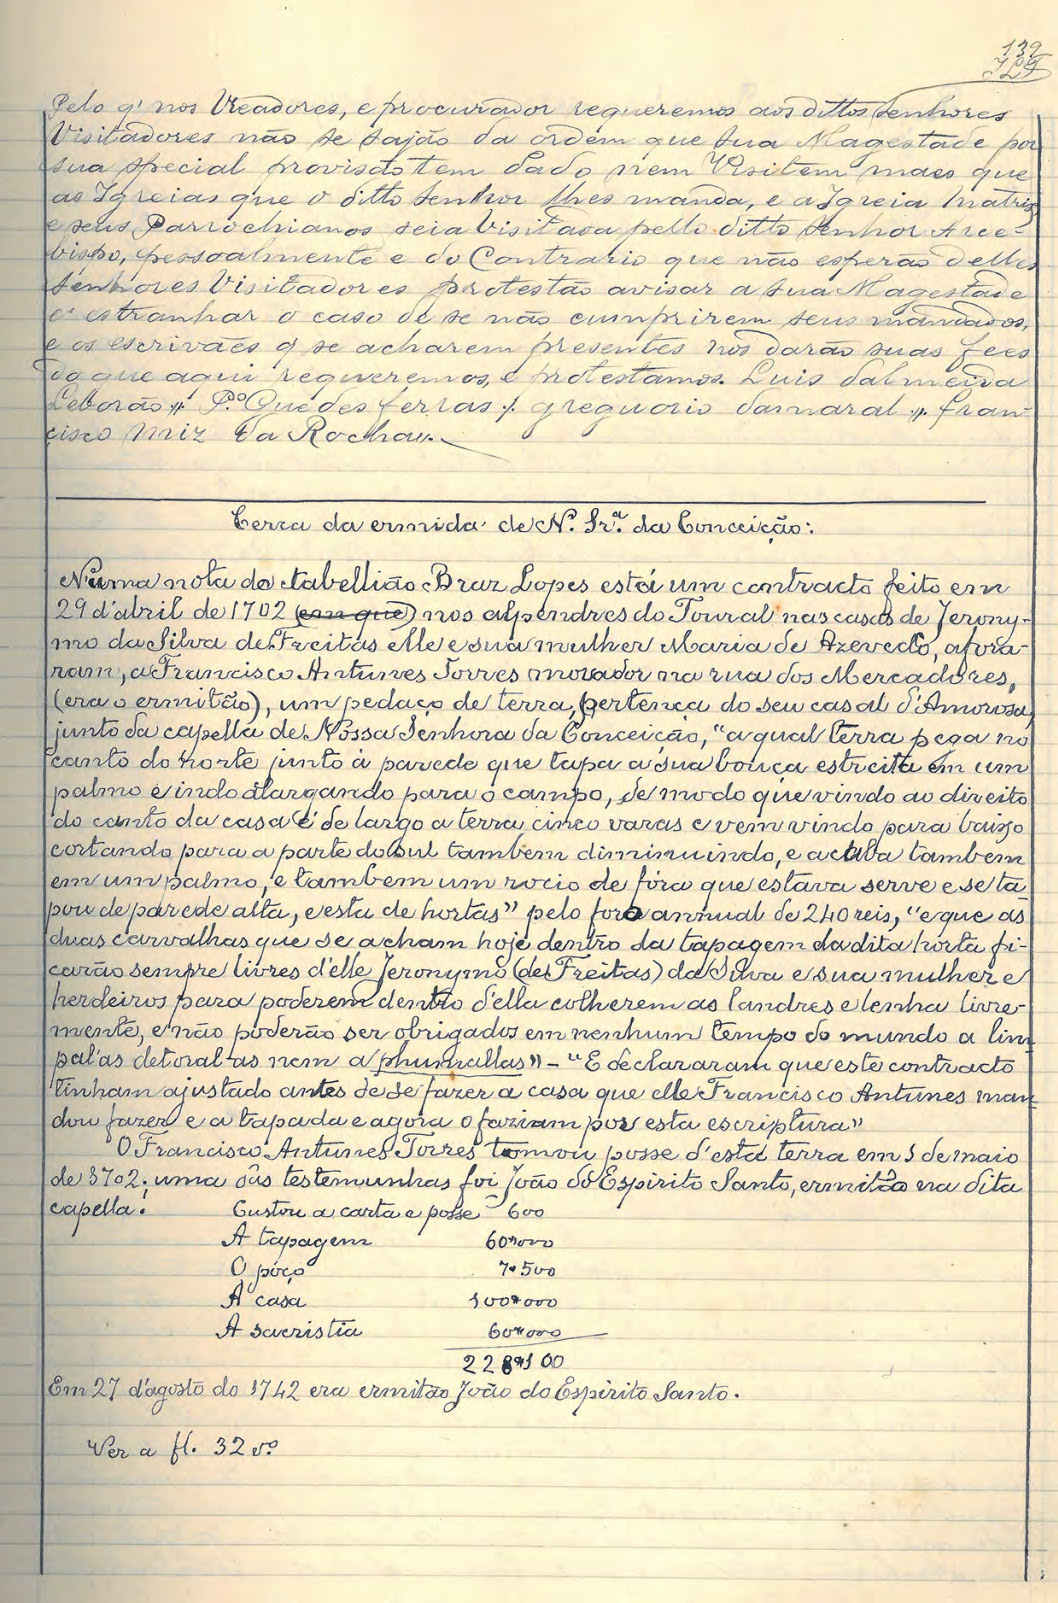 139
Pelo q' nos Vreadores, e procurador requeremos aos dittos senhores
Visitadores não se sajão da ordem que sua Magestade por
sua special provisão tem dado nem Visitem maes que
as Igreias que o ditto senhor lhes manda, e a Igreia Matriz
e seus Parrochianos seia Visitada pello ditto senhor Arce-
bispo, pessoalmente e do Contrario que não esperão delles
senhores Visitadores protestão avisar a sua Magestade
e estranhar o caso de se não cumprirem seus mandados,
e os escrivães q se acharem presentes nos darão suas fees
do que aqui requeremos, e protestamos. Luis dalmeida
Leborão,, P.º Guedes ferras ,, greguorio damaral ,, fran-
cisco miz da Rocha,,.
Terra da ermida de N. Srª. da Conceição:
Numa nota do tabellião Braz Lopes está um contracto feito em
29 d'abril de 1702 (em que) nos alpendres do Toural nas casas de Jerony-
mo da Silva de Freitas elle e sua mulher Maria de Azevedo, afora-
ram, a Francisco Antunes Torres morador na rua dos Mercadores,
(era o ermitão), um pedaço de terra, (pertença do seu casal d'Amorosa,
junto da capella de Nossa Senhora da Conceição, "a qual terra pega no
canto do norte junto á parede que tapa a sua bouça estreita em um
palmo e indo alargando para o campo, de modo que vindo ao direito
do canto da casa é de largo a terra cinco varas e vem vindo para baixo
cortando para a parte do sul tambem diminuindo, e acaba tambem
em um palmo, e tambem um rocio de fóra que estava serve e se ta
pou de parede alta, e esta de hortas" pelo foro annual de 240 reis, "e que as
duas carvalhas que se acham hoje dentro da tapagem da dita horta fi-
carão sempre livres d'elle Jeronymo (de Freitas) da Silva e sua mulher e
herdeiros para poderem dentro d'ella colherem as landres e lenha livre-
mente, e não poderão ser obrigados em nenhum tempo do mundo a lim
pal'as detoral-as nem a phumallas" – "E declararam que este contracto
tinham ajustado antes de se fazer a casa que elle Francisco Antunes man
dou fazer e a tapada e agora o faziam por esta escriptura"
O Francisco Antunes Torres tomou posse d'esta terra em 1 de maio
de 1702; uma das testemunhas foi João do Espirito Santo, ermitão na dita
capella. Custou a carta e posse 600
A tapagem 60$000
O poço 7$500
A casa 100$000
A sacristia 60$000
228$100
Em 27 d'agosto do 1742 era ermitão João do Espirito Santo.
Ver a fl. 32 vº